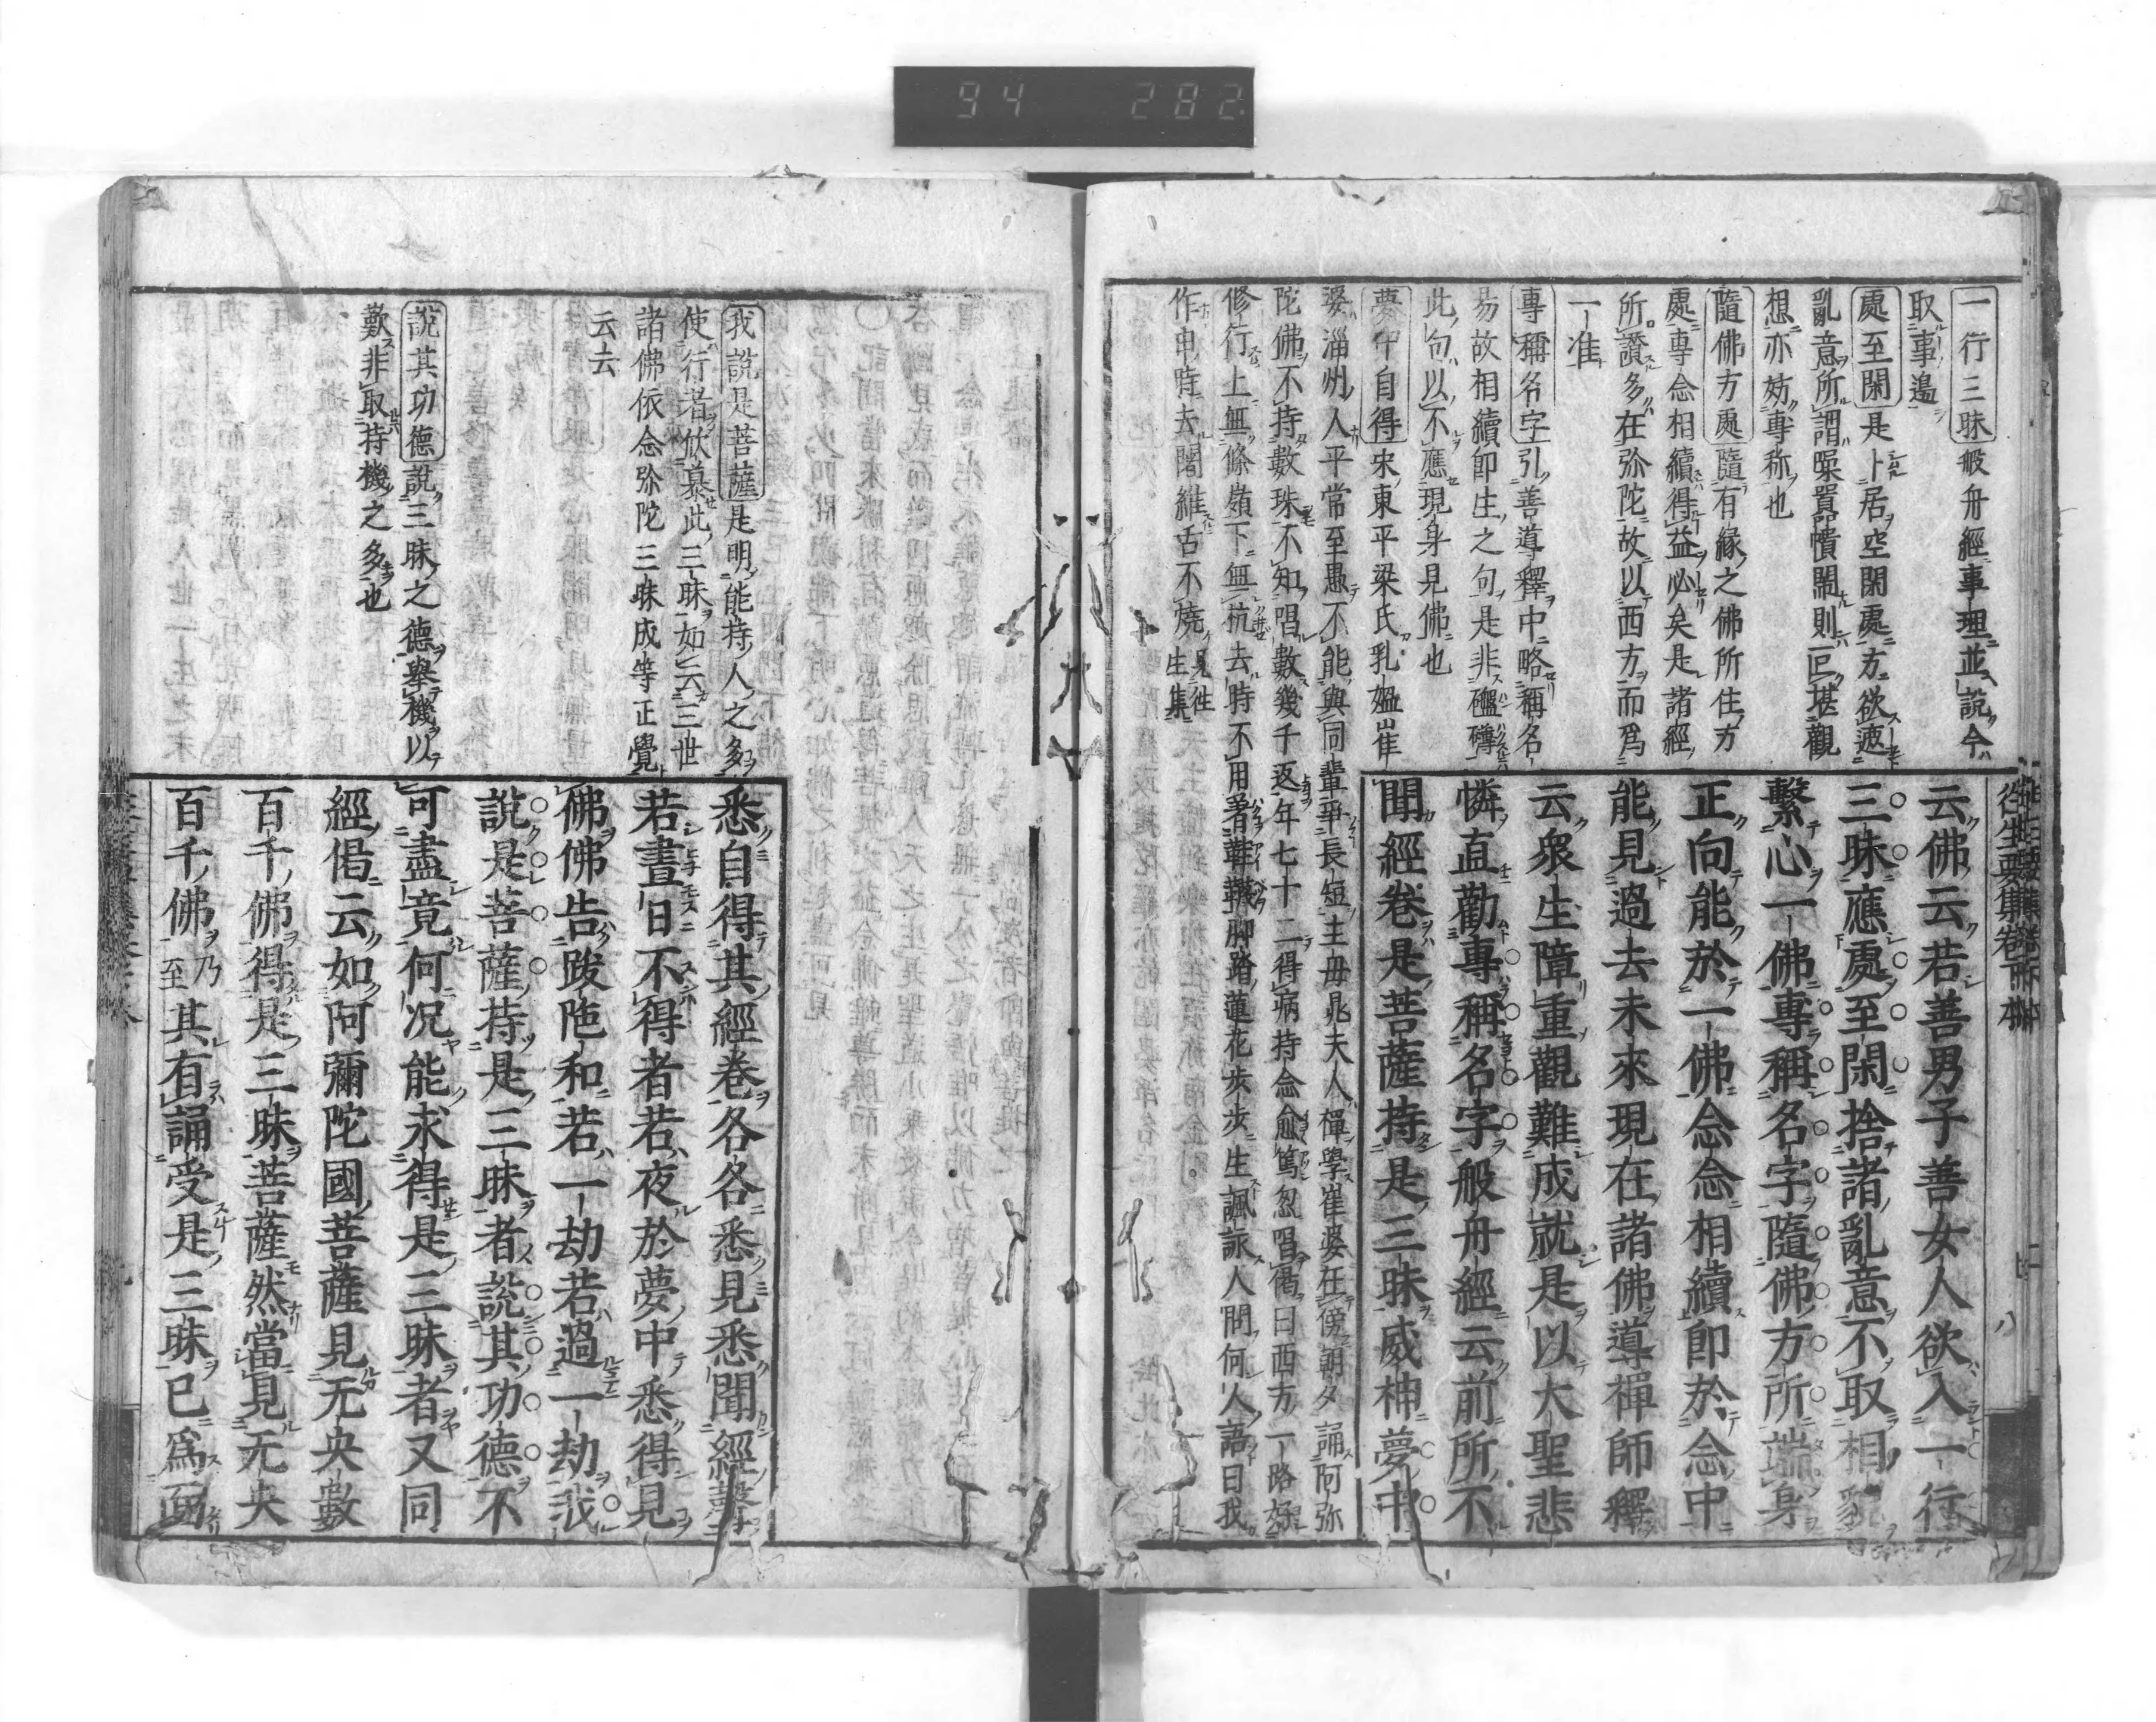 94 282
一行三昧般舟經事理並說今
取事邉
處至閑是卜居空閑處方欲遮
亂意所謂喿嚚憒閙則叵堪觀
想亦妨專称也
隨佛方處隨有縁之佛所住方
處專念相續得益必矣是諸經
所讚多在弥陀故以西方而爲
一准
專稱名字引善導釋中略稱名
易故相續即生之句是非礷礴
此句以不應現身見佛也
夢中自得宋東平梁氏乳媼崔
婆淄州人平常至愚不能與同輩爭長短主毋晁夫人禪學崔婆在傍朝夕誦阿弥
陀佛不持數珠不知唱數幾千返年七十二得病持念愈篤忽唱偈曰西方一路好
修行上無條嶺下無坑去時不用著鞋韈脚踏蓮花步步生諷詠人問何人語曰我
作申時去闍維舌不燒見往生集
往生要集卷下本
八
云佛云若善男子善女人欲入一行
三昧應處至閑捨諸亂意不取相貌
繫心一佛專稱名字隨佛方所端身
正向能於一佛念念相續即於念中
能見過去未來現在諸佛導禪師釋
云衆生障重觀難成就是以大聖悲
憐直勸專稱名字般舟經云前所不
聞經卷是菩薩持是三昧威神夢中
我說是菩薩是明能持人之多
使行者欣慕此三昧如云三世
諸佛依念弥陀三昧成等正覺
云云
說其功德說三昧之德舉機以
歎非取持機之多也
悉自得其經卷各各悉見悉聞經聲
若晝日不得者若夜於夢中悉得見
佛佛告跋陁和若一劫若過一劫我
說是菩薩持是三昧者說其功德不
可盡竟何況能求得是三昧者又同
經偈云如阿彌陀國菩薩見无央數
百千佛得是三昧菩薩然當見无央
百千佛乃至其有誦受是三昧已爲面